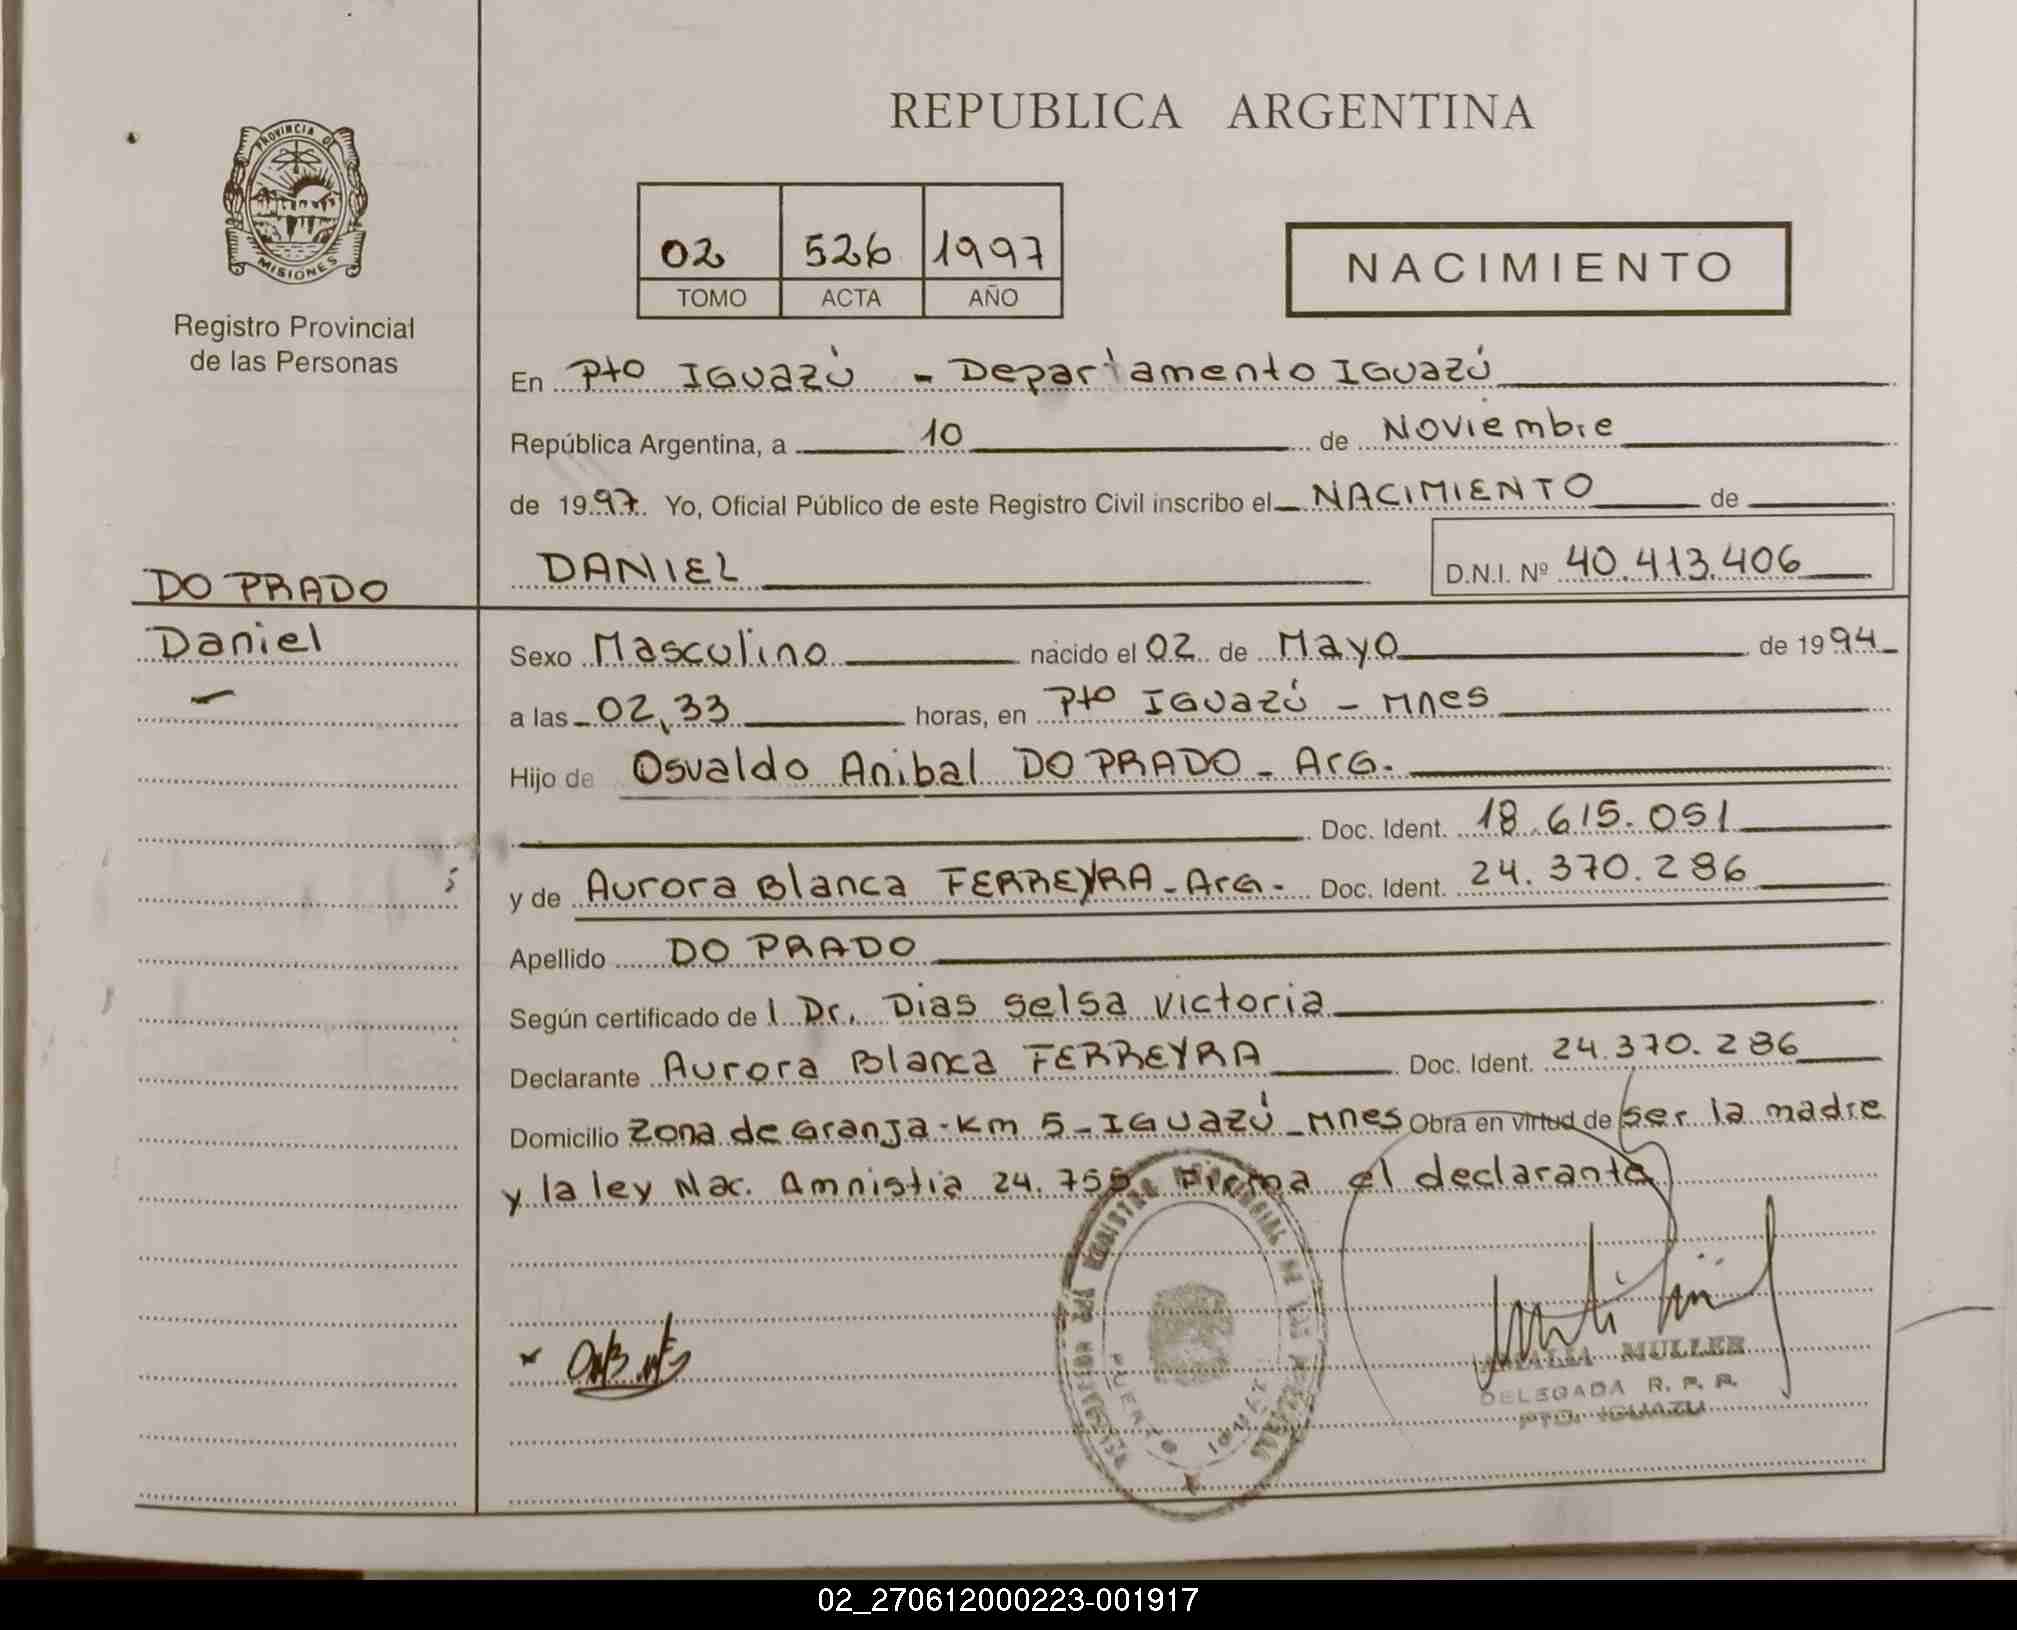 REPUBLICA ARGENTINA
PROVINCIA DE
MISIONES
Registro Provincial
de las Personas
02 526 1997
TOMO ACTA AÑO
NACIMIENTO
En Pto IGuazú - Departamento IGuazú
República Argentina, a 10 de Noviembre
de 1997. Yo, Oficial Público de este Registro Civil inscribo el NACIMIENTO de
DANIEL D.N.I. Nº 40.413.406
DO PRADO
Daniel
Sexo Masculino nacido el 02 de Mayo de 1994
a las 02,33 horas, en Pto IGuazú - Mnes
Hijo de Osvaldo Anibal DO PRADO - ArG.
Doc. Ident. 18.615.051
y de Aurora Blanca FERREYRA - ArG. - Doc. Ident. 24.370.286
Apellido DO PRADO
Según certificado de l Dr. Dias Selsa Victoria
Declarante Aurora Blanca FERREYRA Doc. Ident. 24.370.286
Domicilio Zona de Granja - Km 5 - IGuazú - Mnes Obra en virtud de ser la madre
y la ley Nac. Amnistia 24.755 Firma el declarante
MULLER
DELEGADA R. P. P.
PTO. IGUAZU
02_270612000223-001917